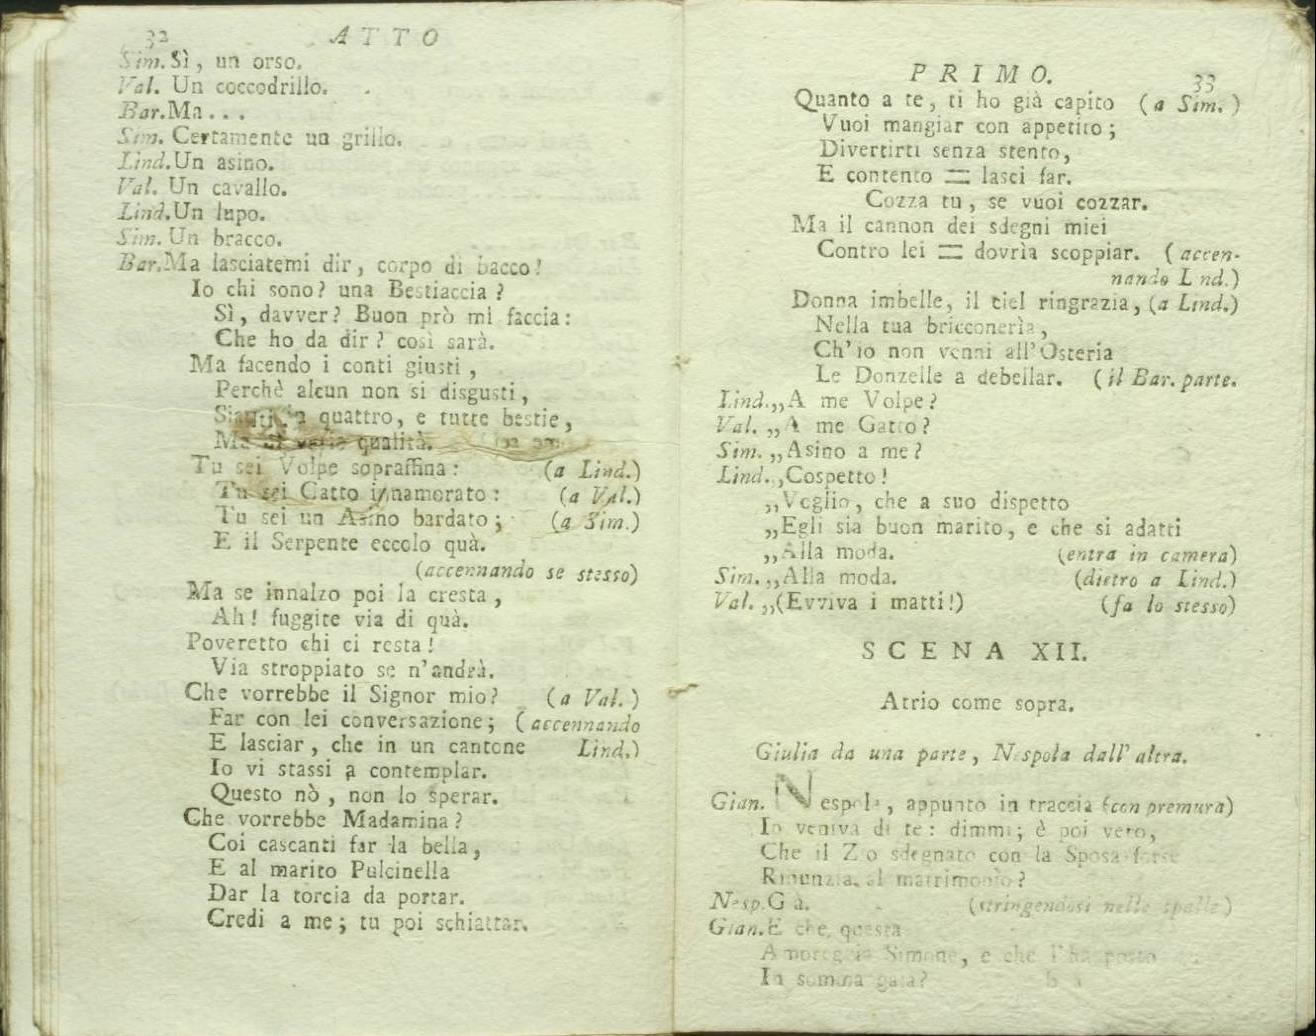 32 ATTO
Sim. Sì, un orso.
Val. Un coccodrillo.
Bar. Ma...
Sim. Certamente un grillo.
Lind. Un asino.
Val. Un cavallo.
Lind. Un lupo.
Sim. Un bracco.
Bar. Ma lasciatemi dir, corpo di bacco!
Io chi sono? una Bestiaccia?
Sì, davver? Buon prò mi faccia:
Che ho da dir? così sarà.
Ma facendo i conti giusti,
Perchè alcun non si disgusti,
quattro, e tutte bestie,
Ma qualità.
Tu sei Volpe sopraffina: (a Lind.)
Tu sei Gatto innamorato: (a Val.)
Tu sei un Asino bardato; (a Sim.)
E il Serpente eccolo quà.
(accennando se stesso)
Ma se innalzo poi la cresta,
Ah! fuggite via di quà.
Poveretto chi ci resta!
Via stroppiato se n'andrà.
Che vorrebbe il Signor mio? (a Val.)
Far con lei conversazione; (accennando
E lasciar, che in un cantone Lind.)
Io vi stassi a contemplar.
Questo nò, non lo sperar.
Che vorrebbe Madamina?
Coi cascanti far la bella,
E al marito Pulcinella
Dar la torcia da portar.
Credi a me; tu poi schiattar.
PRIMO. 33
Quanto a te, ti ho già capito (a Sim.)
Vuoi mangiar con appetito;
Divertirti senza stento,
E contento = lasci far.
Cozza tu, se vuoi cozzar.
Ma il cannon dei sdegni miei
Contro lei = dovrìa scoppiar. (accen-
nando L nd.)
Donna imbelle, il ciel ringrazia, (a Lind.)
Nella tua bricconerìa,
Ch'io non venni all'Osteria
Le Donzelle a debellar. (il Bar. parte.
Lind. „A me Volpe?
Val. „A me Gatto?
Sim. „Asino a me?
Lind. „Cospetto!
„Voglio, che a suo dispetto
„Egli sia buon marito, e che si adatti
„Alla moda. (entra in camera)
Sim. „Alla moda. (dietro a Lind.)
Val. „(Evviva i matti!) (fa lo stesso)
SCENA XII.
Atrio come sopra.
Giulia da una parte, Nespola dall' altra.
Gian. Nespola, appunto in traccia (con premura)
Io veniva di te: dimmi; è poi vero,
Che il Zio sdegnato con la Sposa forse
Rinunzia al matrimonio?
Nesp. Già. (stringendosi nelle spalle)
Gian. E che, questa
Simone, e che
In somma